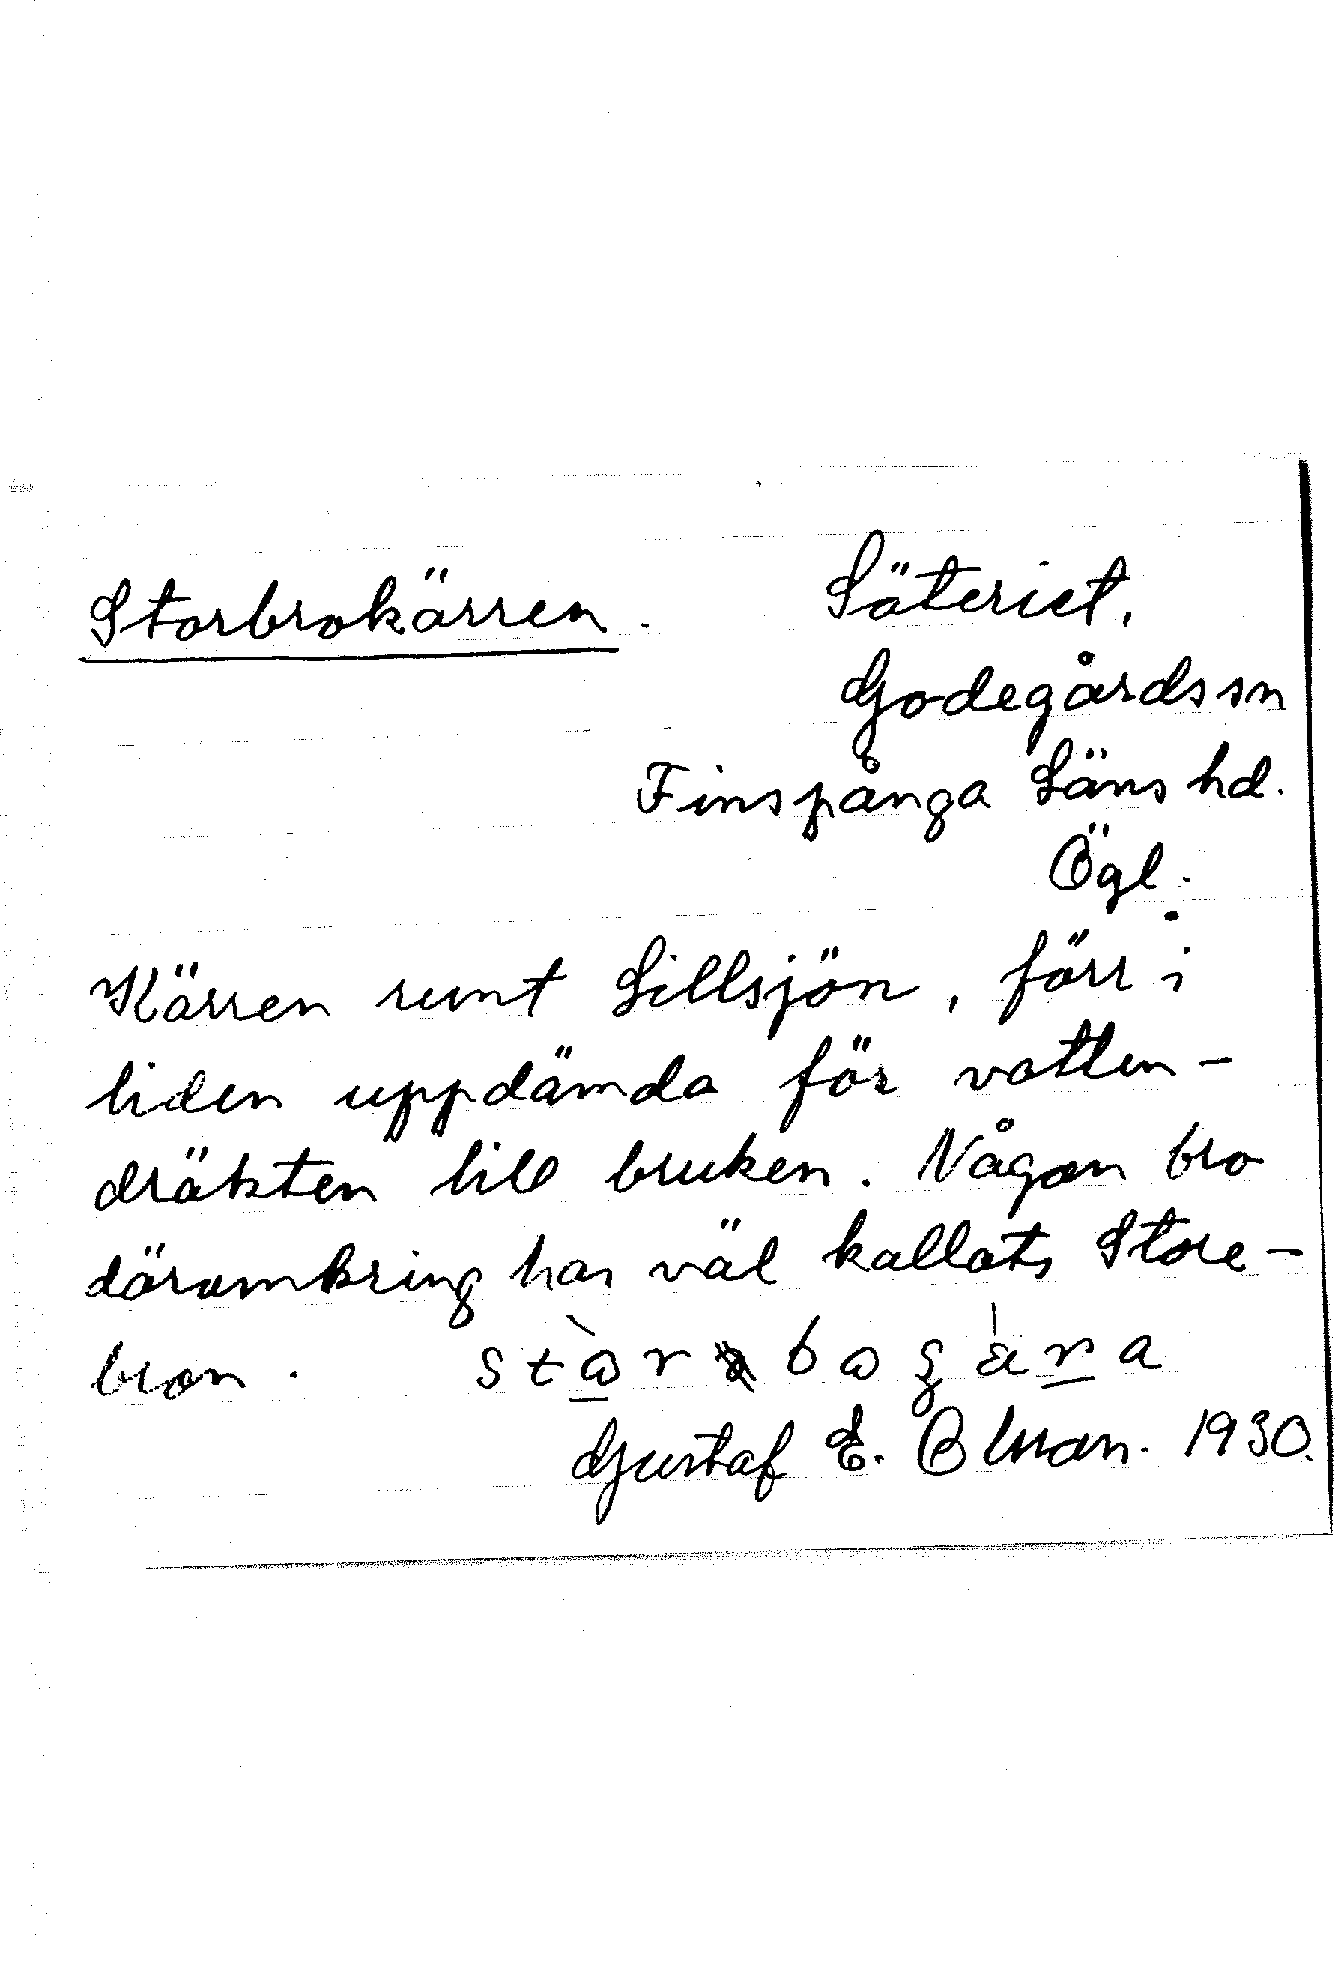 Storbrokärren.
Säteriet,
Godegårds sn
Finspånga Läns hd.
Ögl.
Kärren runt Lillsjön, förr i
tiden uppdämda för vatten-
dräkten till bruken. Någon bro
däromkring har väl kallats Store-
bron.
Gustaf E. 1930.